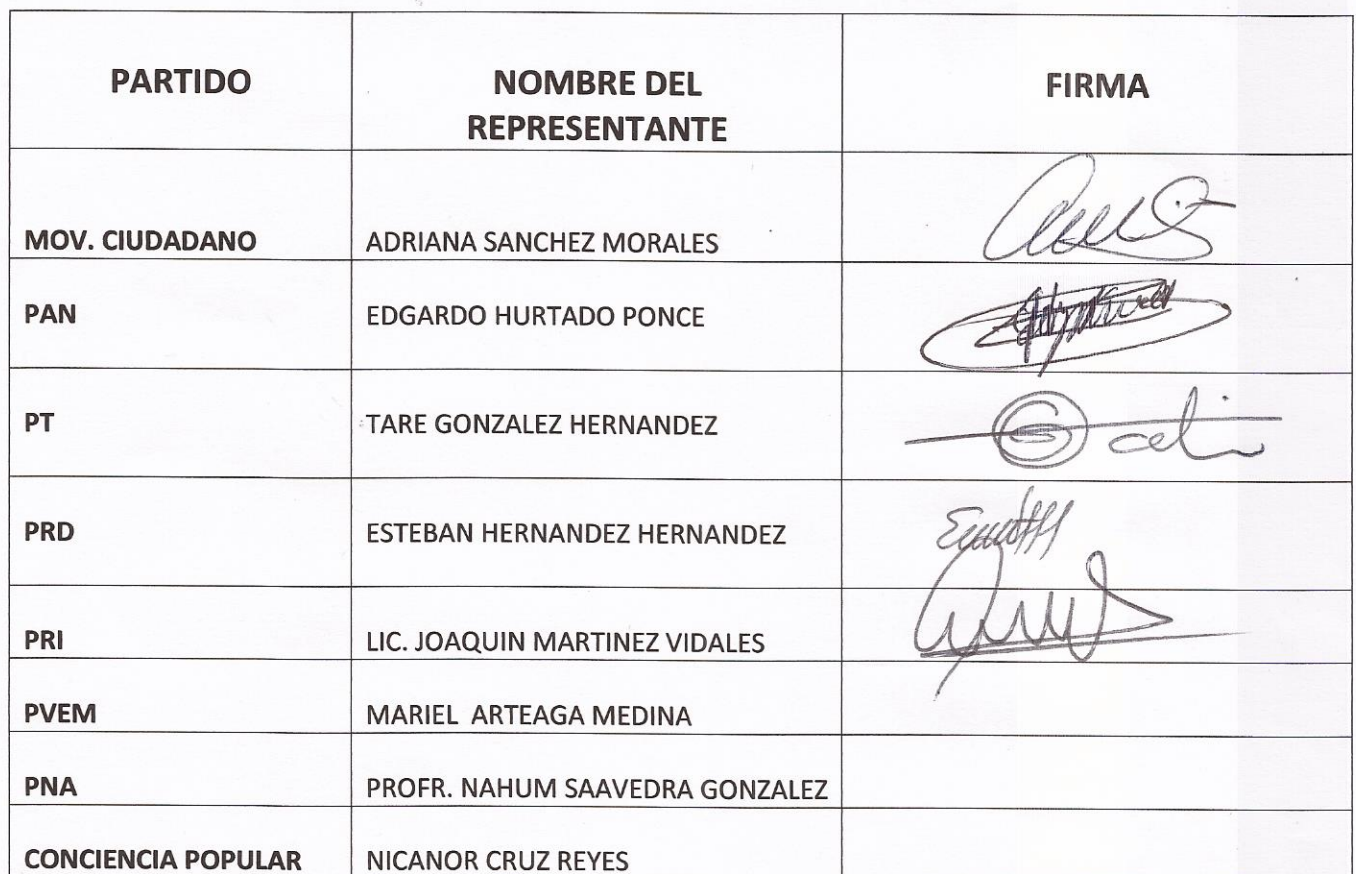 PARTIDO
NOMBRE DEL
REPRESENTANTE
FIRMA
MOV. CIUDADANO
ADRIANA SANCHEZ MORALES
PAN
EDGARDO HURTADO PONCE
PT
TARE GONZALEZ HERNANDEZ
PRD
ESTEBAN HERNANDEZ HERNANDEZ
PRI
LIC. JOAQUIN MARTINEZ VIDALES
PVEM
MARIEL ARTEAGA MEDINA
PNA
PROFR. NAHUM SAAVEDRA GONZALEZ
CONCIENCIA POPULAR
NICANOR CRUZ REYES